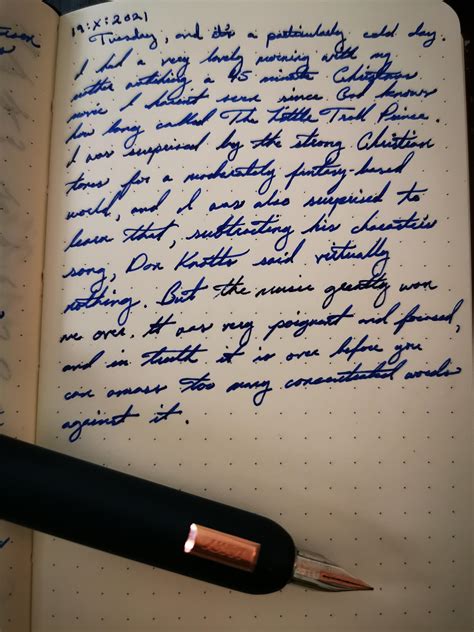 19:X:2021
Tuesday, and it's a particularly cold day.
I had a very lovely morning with my
mother watching a 45 minute Christmas
movie I haven't seen since God knows
how long called The Little Troll Prince.
I was surprised by the strong Christian
tones for a moderately fantasy-based
world, and I was also surprised to
learn that, subtracting his character
song, Don Knotts said virtually
nothing. But the music greatly won
me over. It was very poignant and focused,
and in truth it is over before you
can amass too many concentrated words
against it.